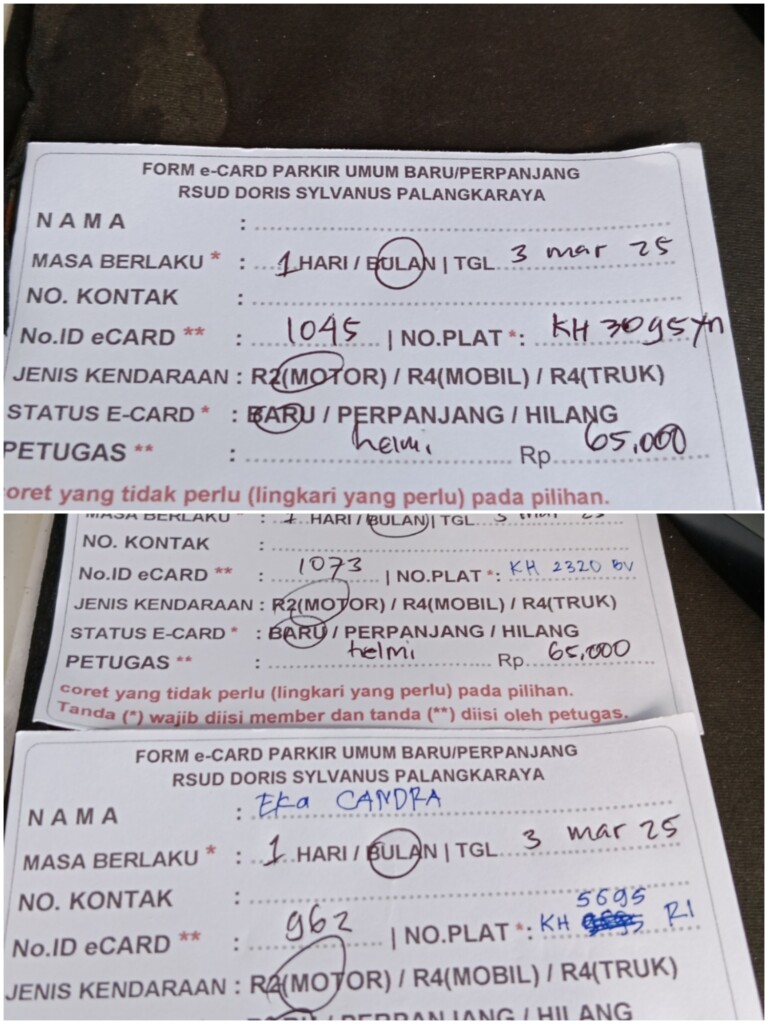 FORM e-CARD PARKIR UMUM BARU/PERPANJANG
RSUD DORIS SYLVANUS PALANGKARAYA
NAMA :
MASA BERLAKU * : 1 HARI / BULAN | TGL 3 mar 25
NO. KONTAK :
No.ID eCARD ** : 1045 | NO.PLAT *: KH 3095 YN
JENIS KENDARAAN : R2(MOTOR) / R4(MOBIL) / R4(TRUK)
STATUS E-CARD * : BARU / PERPANJANG / HILANG
PETUGAS ** : helmi Rp 65,000
coret yang tidak perlu (lingkari yang perlu) pada pilihan.
MASA BERLAKU * : 1 HARI / BULAN | TGL 3
NO. KONTAK :
No.ID eCARD ** : 1073 | NO.PLAT *: KH 2320 BV
JENIS KENDARAAN : R2(MOTOR) / R4(MOBIL) / R4(TRUK)
STATUS E-CARD * : BARU / PERPANJANG / HILANG
PETUGAS ** : helmi Rp 65,000
coret yang tidak perlu (lingkari yang perlu) pada pilihan.
Tanda (*) wajib diisi member dan tanda (**) diisi oleh petugas.
FORM e-CARD PARKIR UMUM BARU/PERPANJANG
RSUD DORIS SYLVANUS PALANGKARAYA
NAMA : EKa CANDRA
MASA BERLAKU * : 1 HARI / BULAN | TGL 3 mar 25
NO. KONTAK :
No.ID eCARD ** : 962 | NO.PLAT *: KH 5695 RI
JENIS KENDARAAN : R2(MOTOR) / R4(MOBIL) / R4(TRUK)
/ PERPANJANG / HILANG